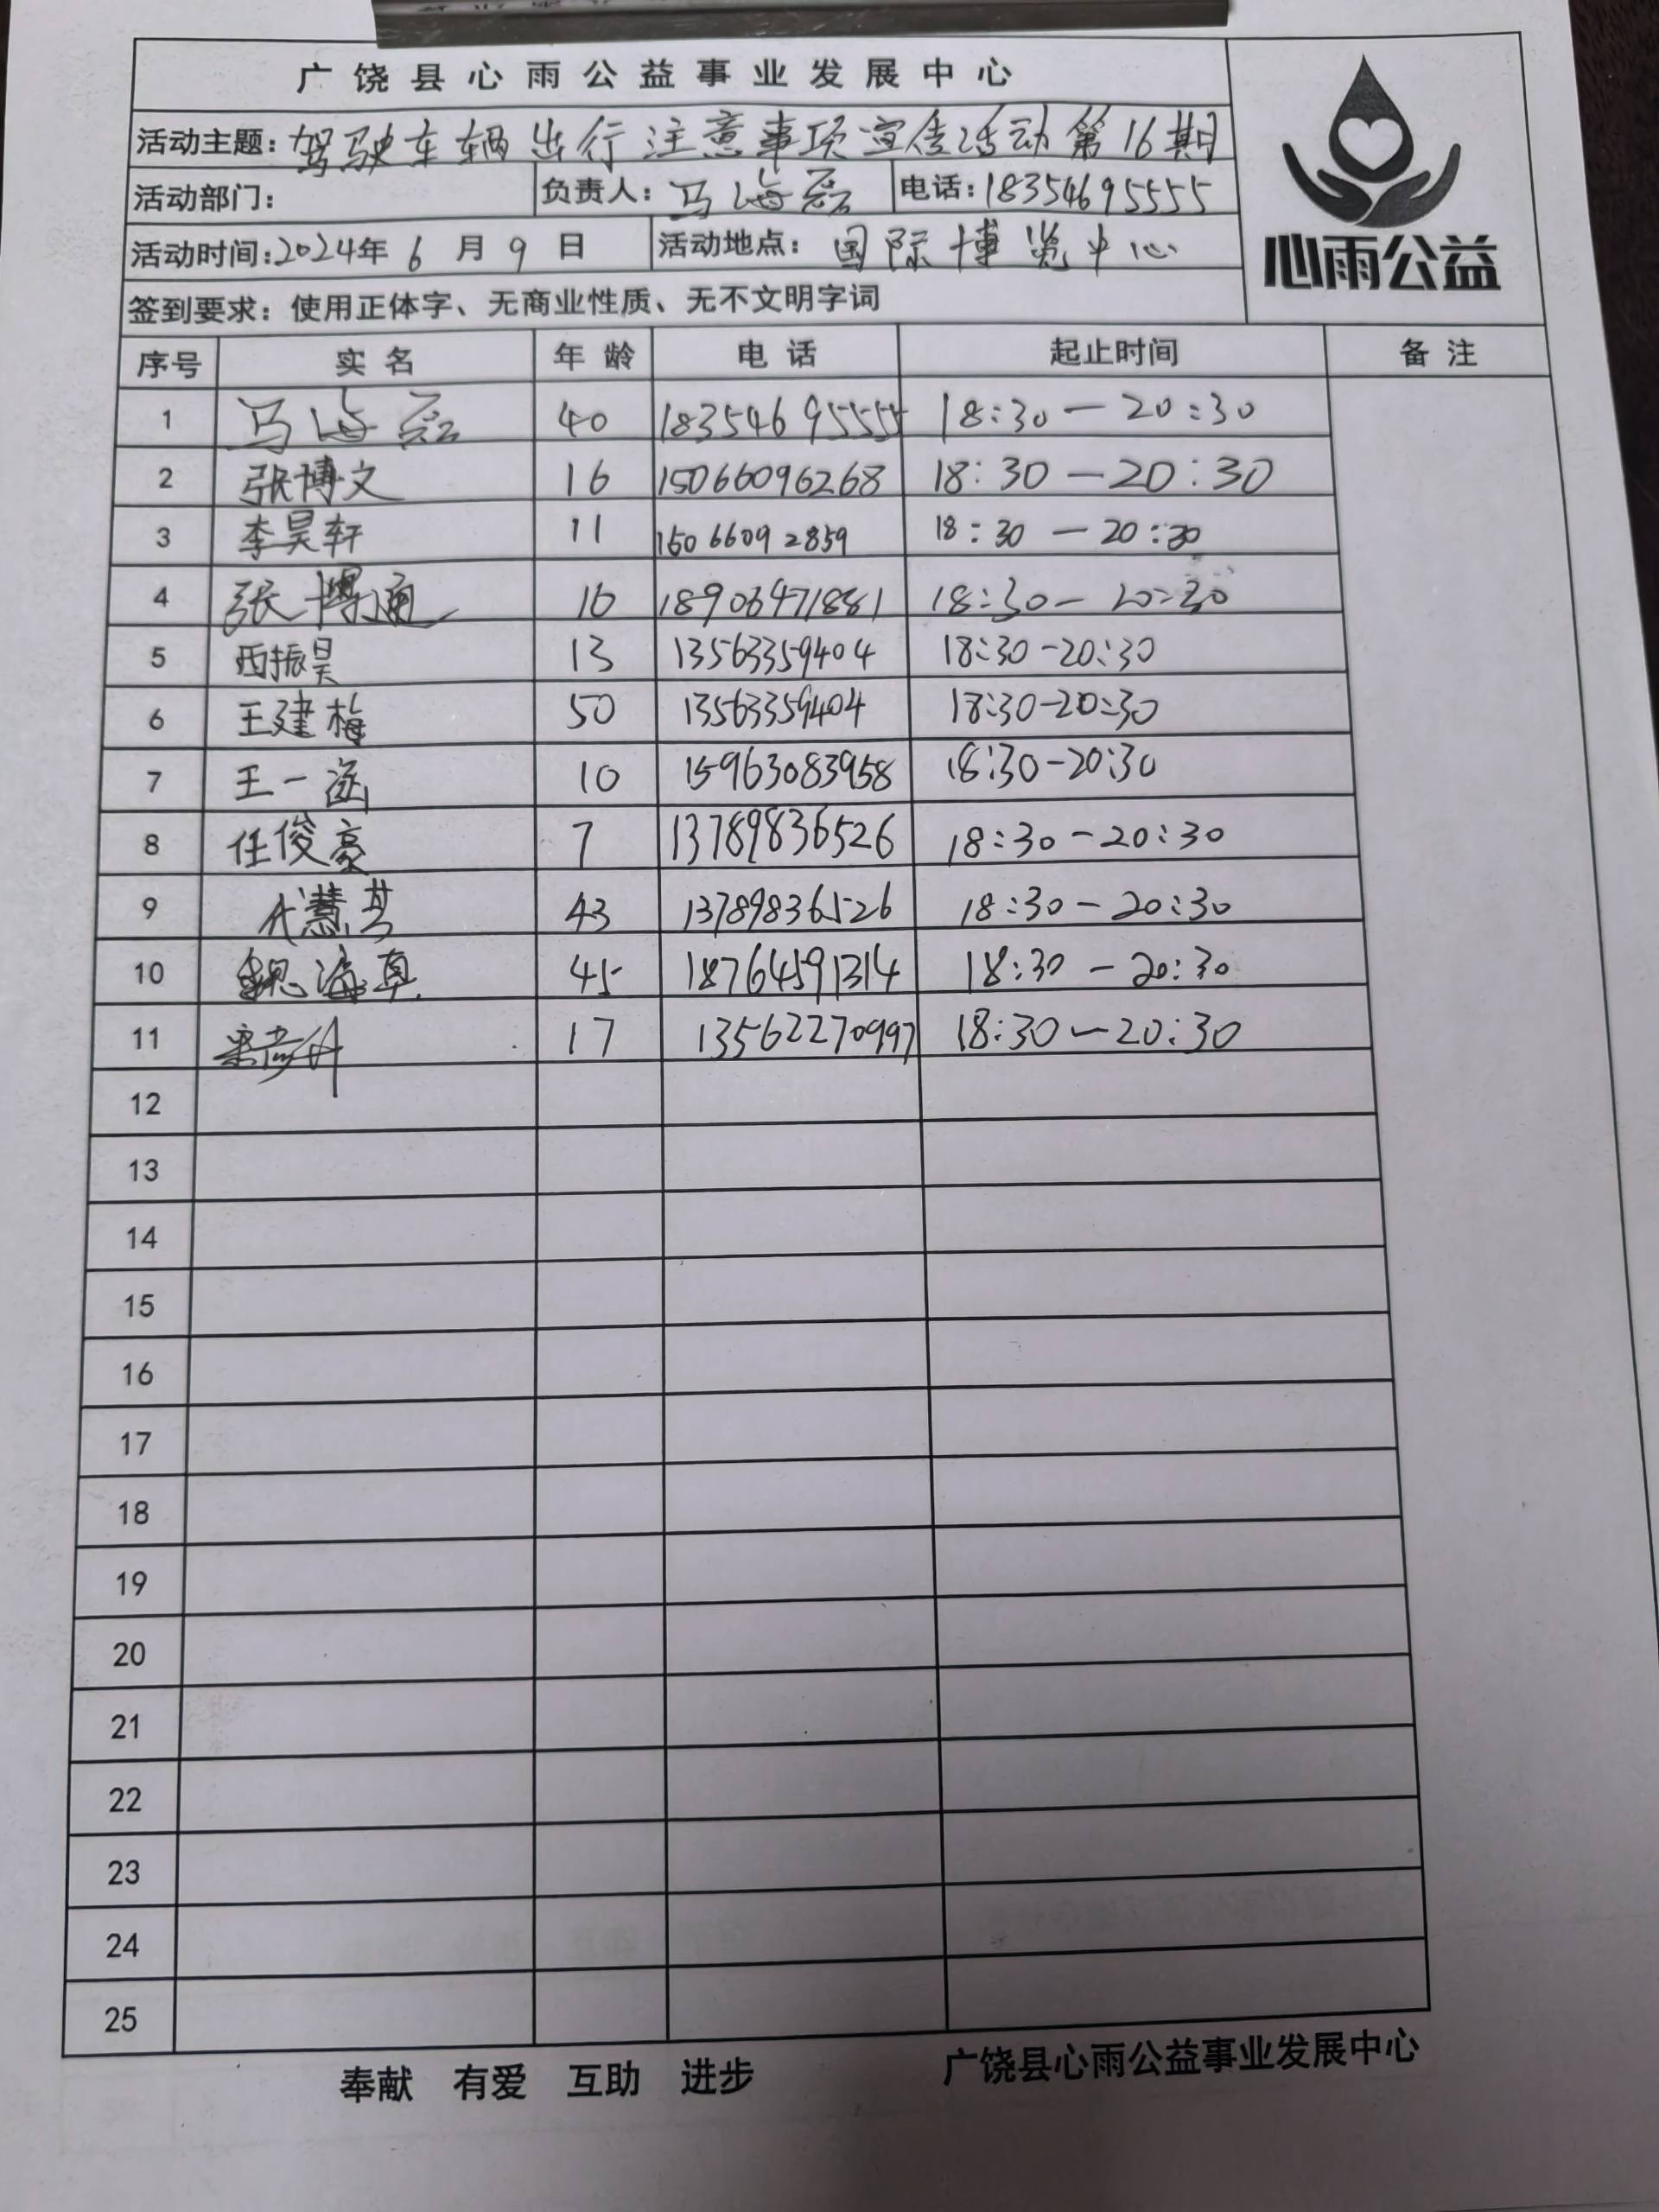 广饶县心雨公益事业发展中心
活动主题：驾驶车辆出行注意事项宣传活动第16期
活动部门： 负责人：马海磊 电话：18354695555
活动时间：2024年6月9日 活动地点：国际博览中心
心雨公益
签到要求：使用正体字、无商业性质、无不文明字词
序号 实名 年龄 电话 起止时间 备注
1 马海磊 40 18354695555 18:30—20:30
2 张博文 16 15066096268 18:30—20:30
3 李昊轩 11 15066092859 18:30—20:30
4 张博涵 10 18906471881 18:30—20:30
5 西振昊 13 13563359404 18:30-20:30
6 王建梅 50 13563359404 18:30-20:30
7 王一涵 10 15963083958 18:30-20:30
8 任俊豪 7 13789836526 18:30-20:30
9 43 13789836526 18:30-20:30
10 魏海真 45 18764591314 18:30-20:30
11 17 13562270997 18:30—20:30
12
13
14
15
16
17
18
19
20
21
22
23
24
25
奉献 有爱 互助 进步 广饶县心雨公益事业发展中心